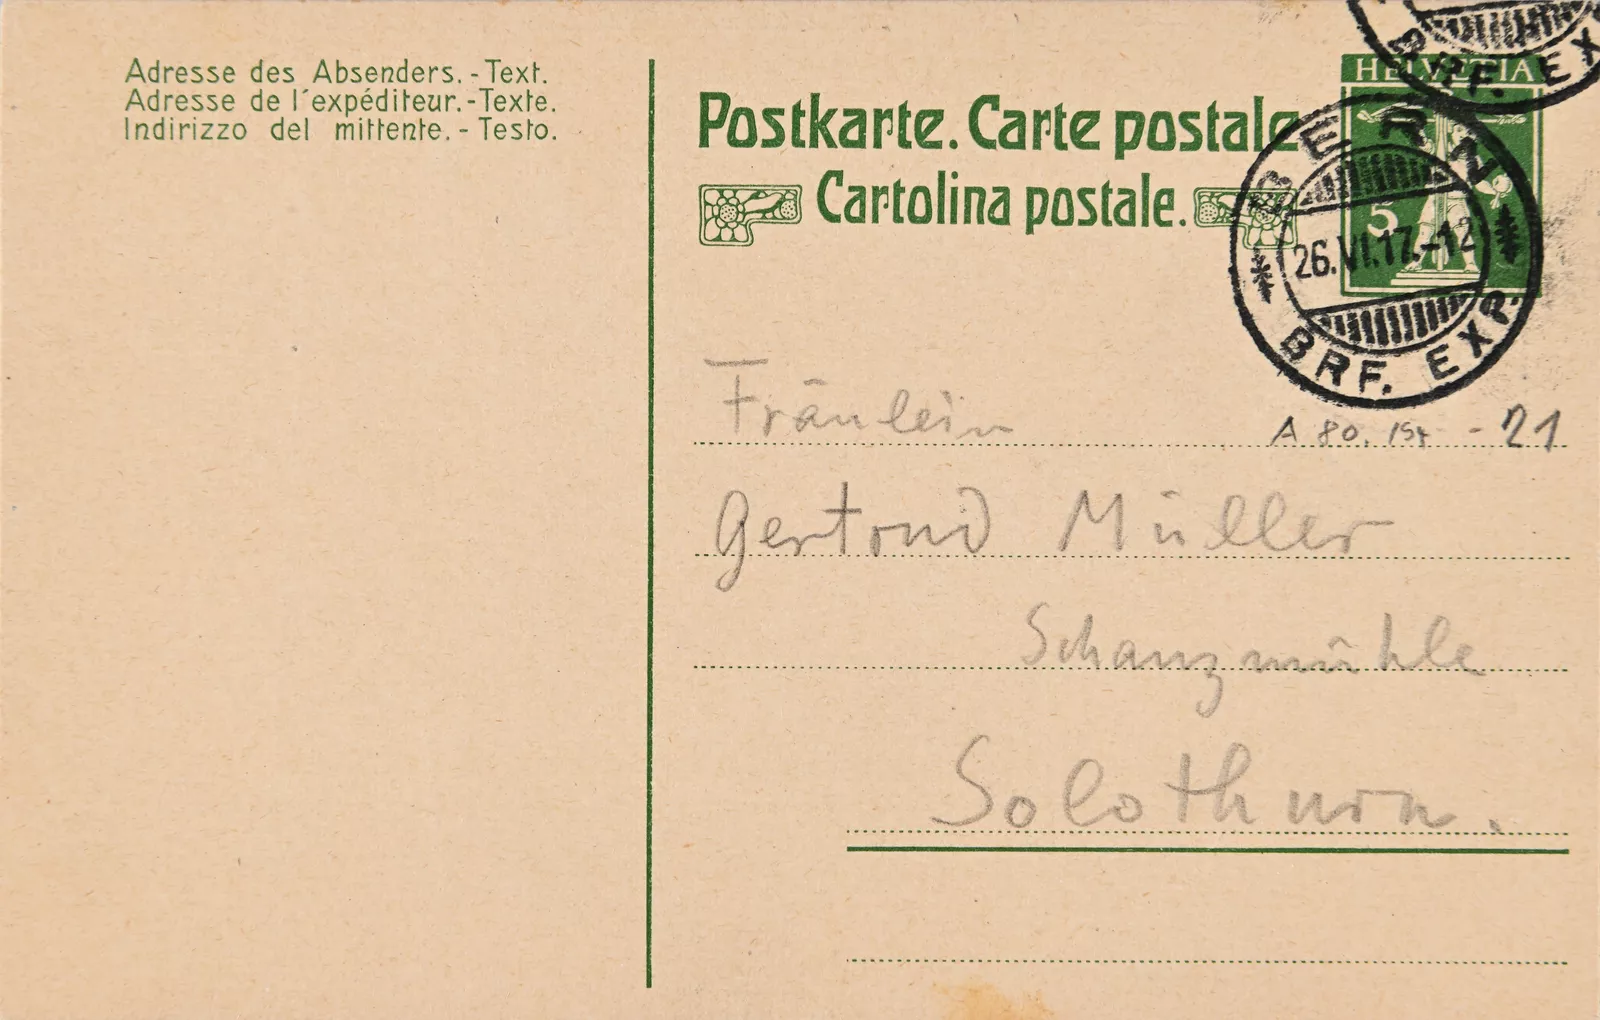 Adresse des Absenders. - Text.
Adresse de l'expéditeur. - Texte.
Indirizzo del mittente. - Testo.
Postkarte. Carte postale
Cartolina postale.
BRF. EX
HELVETIA
5
BERN
26.VI.17.-12
BRF. EXP.
Fräulein
A 80. 154 - 21
Gertrud Müller
Schanzmühle
Solothurn.